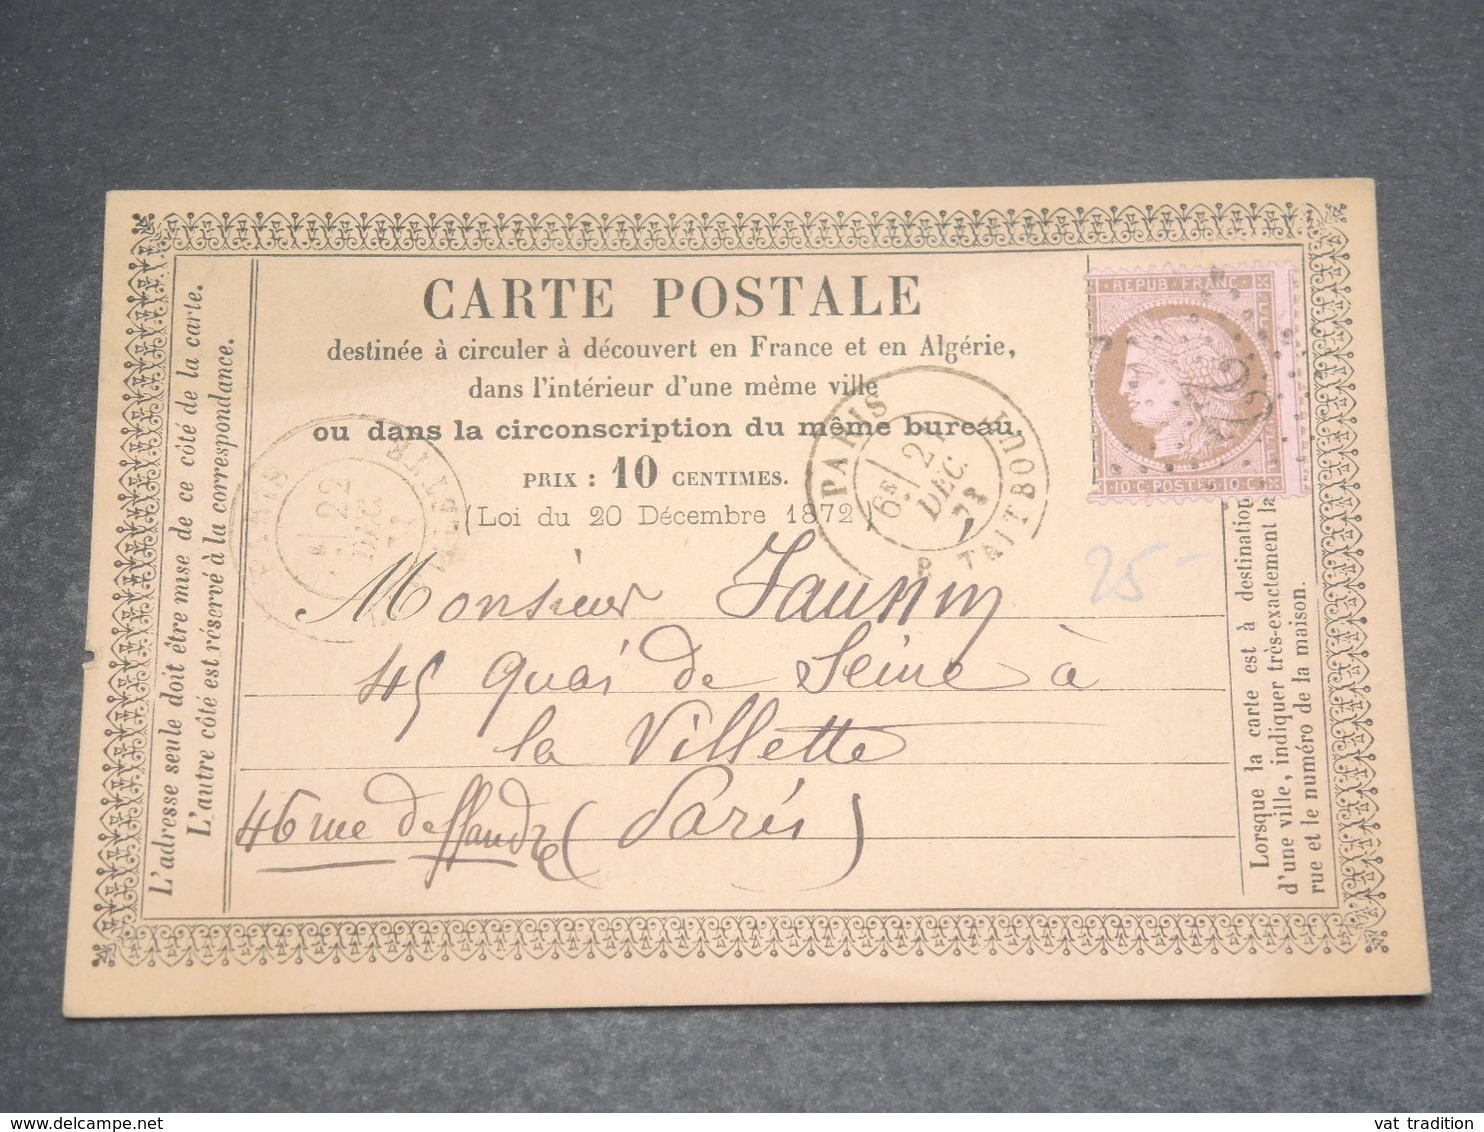 CARTE POSTALE
destinée à circuler à découvert en France et en Algérie,
dans l'intérieur d'une même ville
ou dans la circonscription du même bureau.
PRIX : 10 CENTIMES.
(Loi du 20 Décembre 1872
L'adresse seule doit être mise de ce côté de la carte.
L'autre côté est réservé à la correspondance.
REPUB · FRANC
10 C · POSTES · 10 C
22
PARIS
6E 21
DEC.
73
R. TAITBOUT
PARIS
22
DEC.
25-
Monsieur
45 Quai de Seine à
la Villette
46 rue de flandre (Paris)
Lorsque la carte est à destination
d'une ville, indiquer très-exactement la
rue et le numéro de la maison.
delcampe.net
vat tradition